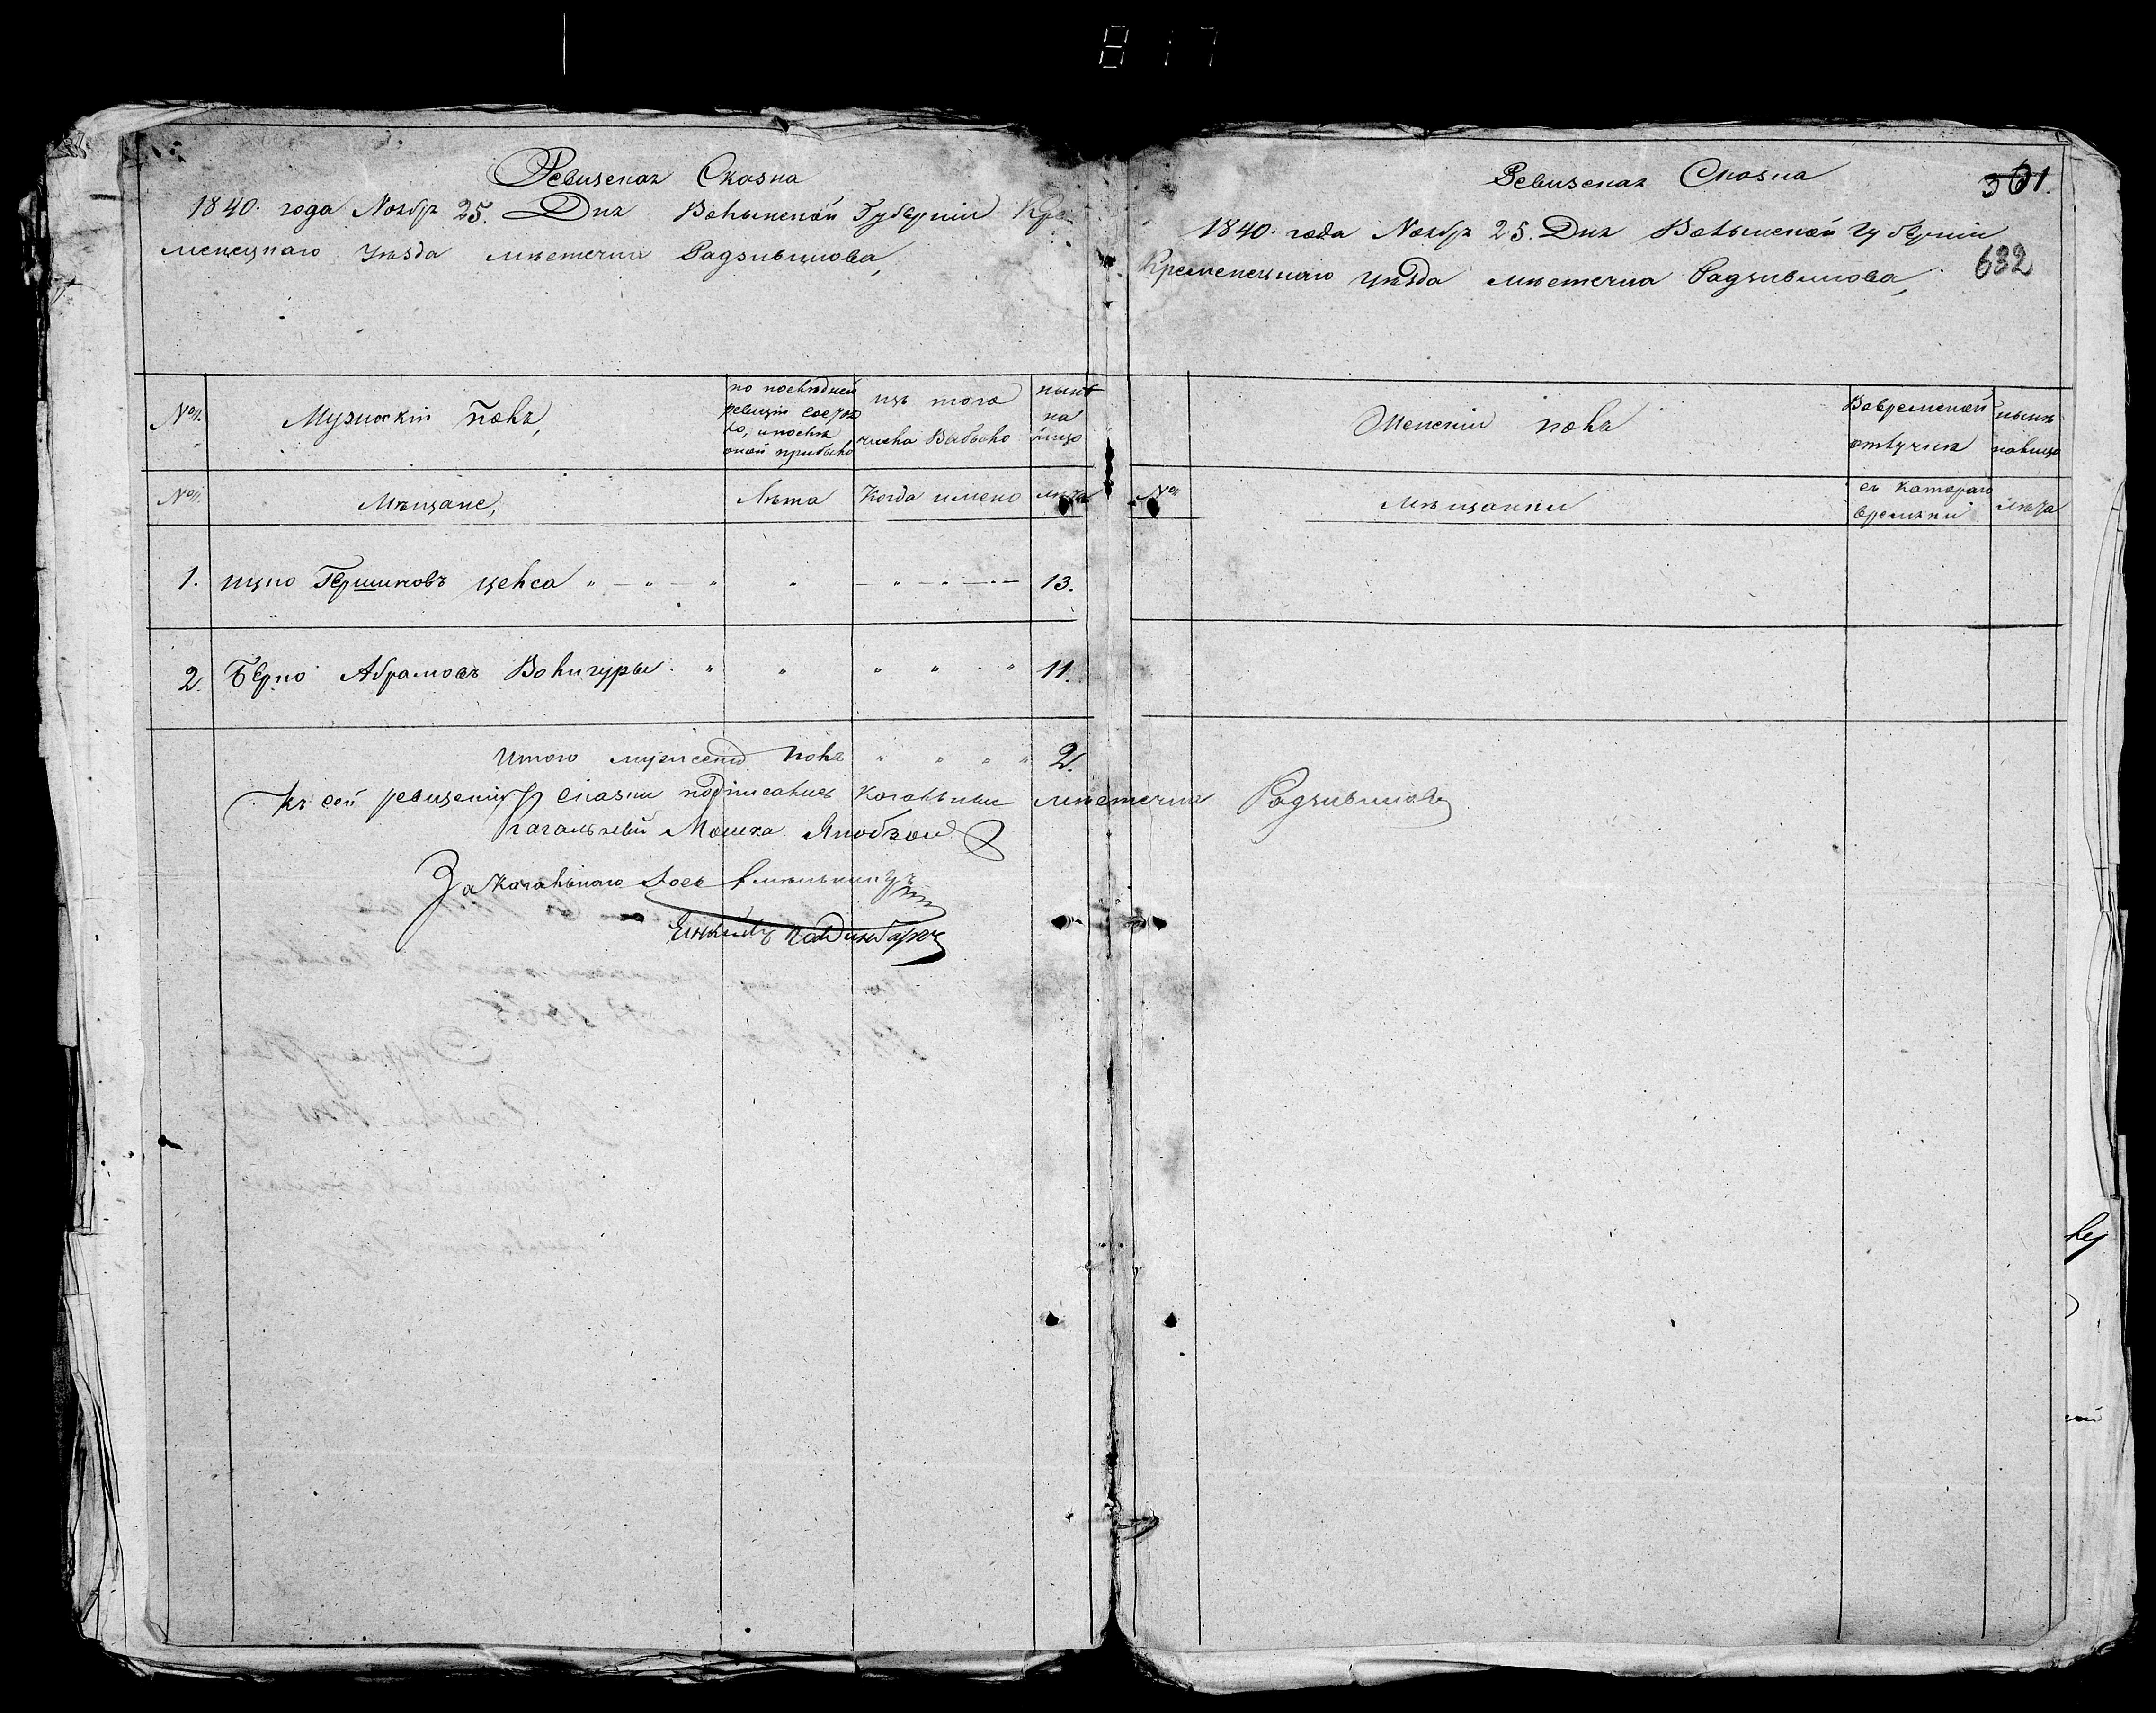 817
Ревизская Сказка
1840. года Ноября 25. Дня Волынской Губерніи Кре
менецкаго Уѣзда мѣстечка Радзивилова,
№
Мужескій полъ,
по послѣдней ревизіи состояло, и послѣ оной прибыло
изъ того числа Выбыло
нынѣ на лицо
№
Мѣщане,
Лѣта
Когда имено
лѣта
1. Ицко Гершковъ Целса 13.
2. Берко Абрамовъ Воличуры 11.
Итого мужеска полъ 2.
Къ сей ревизской сказки подписались Кагальные мѣстечка Радзивилова
Кагальный Мошка Якобзон
За Кагальнаго Лось
Гольдинбаргъ
Ревизская Сказка
301.
1840. года Ноября 25. Дня Волынской Губерніи
632
Кременецкаго Уѣзда мѣстечка Радзивилова,
Женскій полъ
Вовременной отлучки
нынѣ налицо
№
Мѣщанки
съ Котораго времяни
лѣта